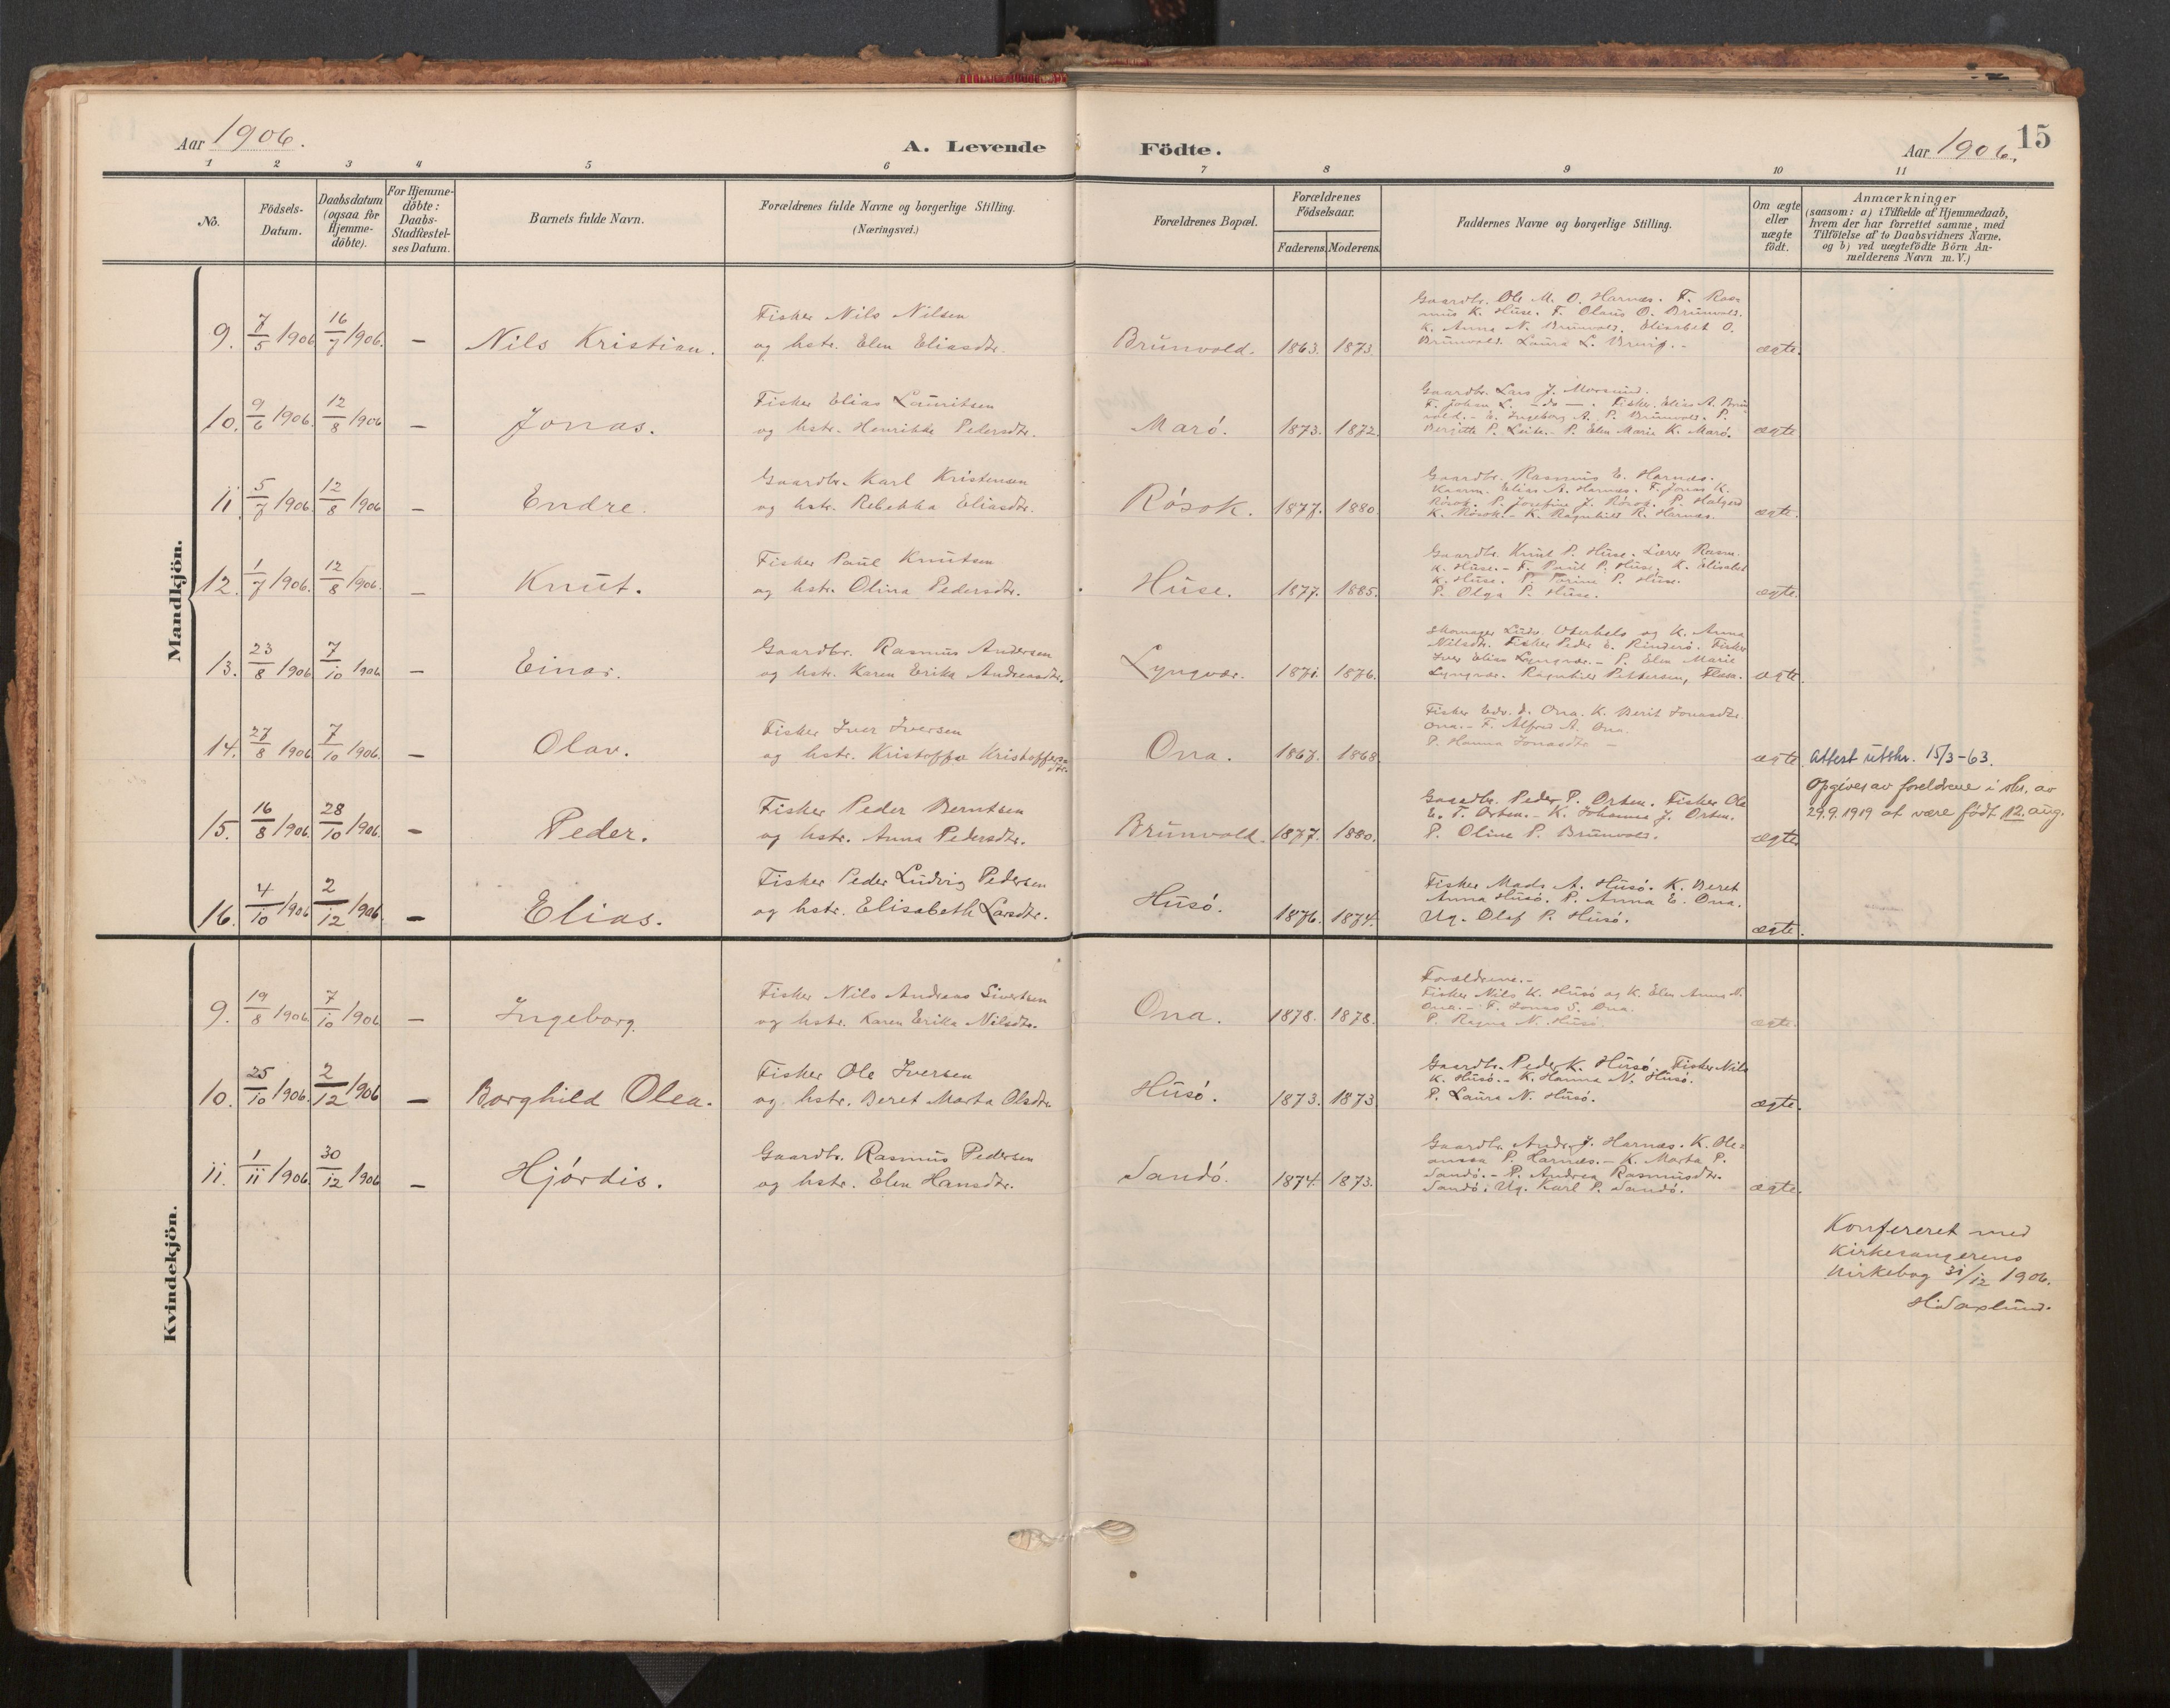 Aar 1906.
A. Levende Födte.
Aar 1906. 15
1 2 3 4 5 6 7 8 9 10 11
No.
Födsels-
Datum.
Daabsdatum
(ogsaa for
Hjemme-
döbte).
For Hjemme-
döbte:
Daabs-
Stadfæstel-
ses Datum.
Barnets fulde Navn.
Forældrenes fulde Navne og borgerlige Stilling.
(Næringsvei.)
Forældrenes Bopæl.
Forældrenes
Födselsaar.
Faderens. Moderens.
Faddernes Navne og borgerlige Stilling.
Om ægte
eller
uægte
födt.
Anmærkninger
(saasom: a) i Tilfælde af Hjemmedaab,
hvem der har forrettet samme, med
Tilföielse af to Daabsvidners Navne,
og b) ved uægtefödte Börn An-
melderens Navn m. V.)
Mandkjön.
9. 7/5 1906 16/7 1906. – Nils Kristian.
Fisker Nils Nilsen
og hstr. Elen Eliasdtr.
Brünvold. 1863. 1873.
Gaardbr. Ole M. O. Harnæs. F. Ras-
mus K. Hüse. F. Olaus O. Brünvold.
K. Anna N. Brünvold. Elisabet O.
Brünvold. Laura L.
ægte.
10. 9/6 1906. 12/8 1906 – Jonas.
Fisker Elias Lauritsen
og hstr. Henrikke Pedersdtr.
Marö. 1873. 1872.
Gaardbr. Lars J. Morsund.
F. Johan L. –do–. Fisker Elias A. Brün-
vold. – K. Ingeborg A. P. Brünvold. P.
Bergitte P. – P. Elen Marie K. Marö.
ægte
11. 5/7 1906. 12/8 1906 – Endre.
Gaardbr. Karl Kristensen
og hstr. Rebekka Eliasdtr.
Rösok. 1877. 1880
Gaardbr. Rasmus E. Harnæs.
Elias A. Harnæs. F. Jonas K.
Rösok. P. Josefine J. Rösok. P.
K. Rösok. – K. Ragnhild R. Harnæs.
ægte.
12. 1/7 1906. 12/8 1906. – Knüt.
Fisker Paul Knutsen
og hstr. Olina Pedersdtr.
Hüse. 1877. 1885.
Gaardbr. Knut P. Hüse. Lærer Rasm.
K. Hüse. – F. Paul P. Hüse. K. Elisabet
K. Hüse. P. P. Hüse.
P. Olga P. Hüse.
ægte.
13. 23/8 1906 7/10 1906 – Einar.
Gaardbr. Rasmus Andersen
og hstr. Karen Erika Andreasdtr.
Lyngvær. 1871. 1876.
Skomager Ludv. og K. Anna
Nilsdtr. Fisker Peder E. Rinderö. Fisker
Iver Elias Lyngvær. – P. Elen Marie
Lyngvær. Ragnhild Pettersen,
ægte.
14. 27/8 1906 7/10 1906. – Olav.
Fisker Iver Iversen
og hstr. Kristoffa Kristoffersdtr.
Ona. 1867. 1868
Fisker Edv. J. Ona. K. Berit Jonasdtr.
Ona. – F. Alfred A. Ona.
P. Hanna Jonasdtr –
ægte. Attest utskr. 15/3-63.
15. 16/8 1906 28/10 1906. – Peder.
Fisker Peder Berntsen
og hstr. Anna Pedersdtr.
Brünvold. 1877. 1880.
Gaardbr. Peder P. Orten. Fisker Ole
E. T. Orten. – K. Johanna J. Orten.
P. Oline P. Brünvold.
ægte
Opgives av foreldrene i skr. av
29.9.1919 at være födt 12. aug.
16. 4/10 1906 2/12 1906. – Elias.
Fisker Peder Ludvig Pedersen
og hstr. Elisabeth Larsdtr.
Hüsö. 1876. 1874.
Fisker Mads A. Hüsö. K. Beret
Anna Hüsö. P. Anna E. Ona.
Ug. Olaf P. Hüsö.
ægte.
Kvindekjön.
9. 19/8 1906 7/10 1906 – Ingeborg.
Fisker Nils Andreas Sivertsen
og hstr. Karen Erika Nilsdtr.
Ona. 1878. 1878.
Forældrene. –
Fisker Nils K. Hüsö og K. Elen Anna N.
Ona. – F. Jonas S. Ona.
P. Ragna N. Hüsö
ægte.
10. 25/10 1906. 2/12 1906 – Borghild Olea.
Fisker Ole Iversen
og hstr. Beret Marta Olsdtr.
Hüsö. 1873. 1873
Gaardbr. Peder K. Hüsö. Fisker Nils
K. Hüsö. – K. Hanna N. Hüsö.
P. Laura N. Hüsö.
ægte.
11. 1/11 1906. 30/12 1906 – Hjördis.
Gaardbr. Rasmus Pedersen
og hstr. Elen Hansdtr.
Sandö. 1874. 1873.
Gaardbr. Andr. J. Harnæs. K. Ole-
anna P. Harnæs. – K. Marta P.
Sandö. – P. Andrea Rasmusdtr.
Sandö. Ug. Karl P. Sandö.
ægte.
Konfereret med
Kirkesangerens
Kirkebog 31/12 1906.
H. Saxlund.